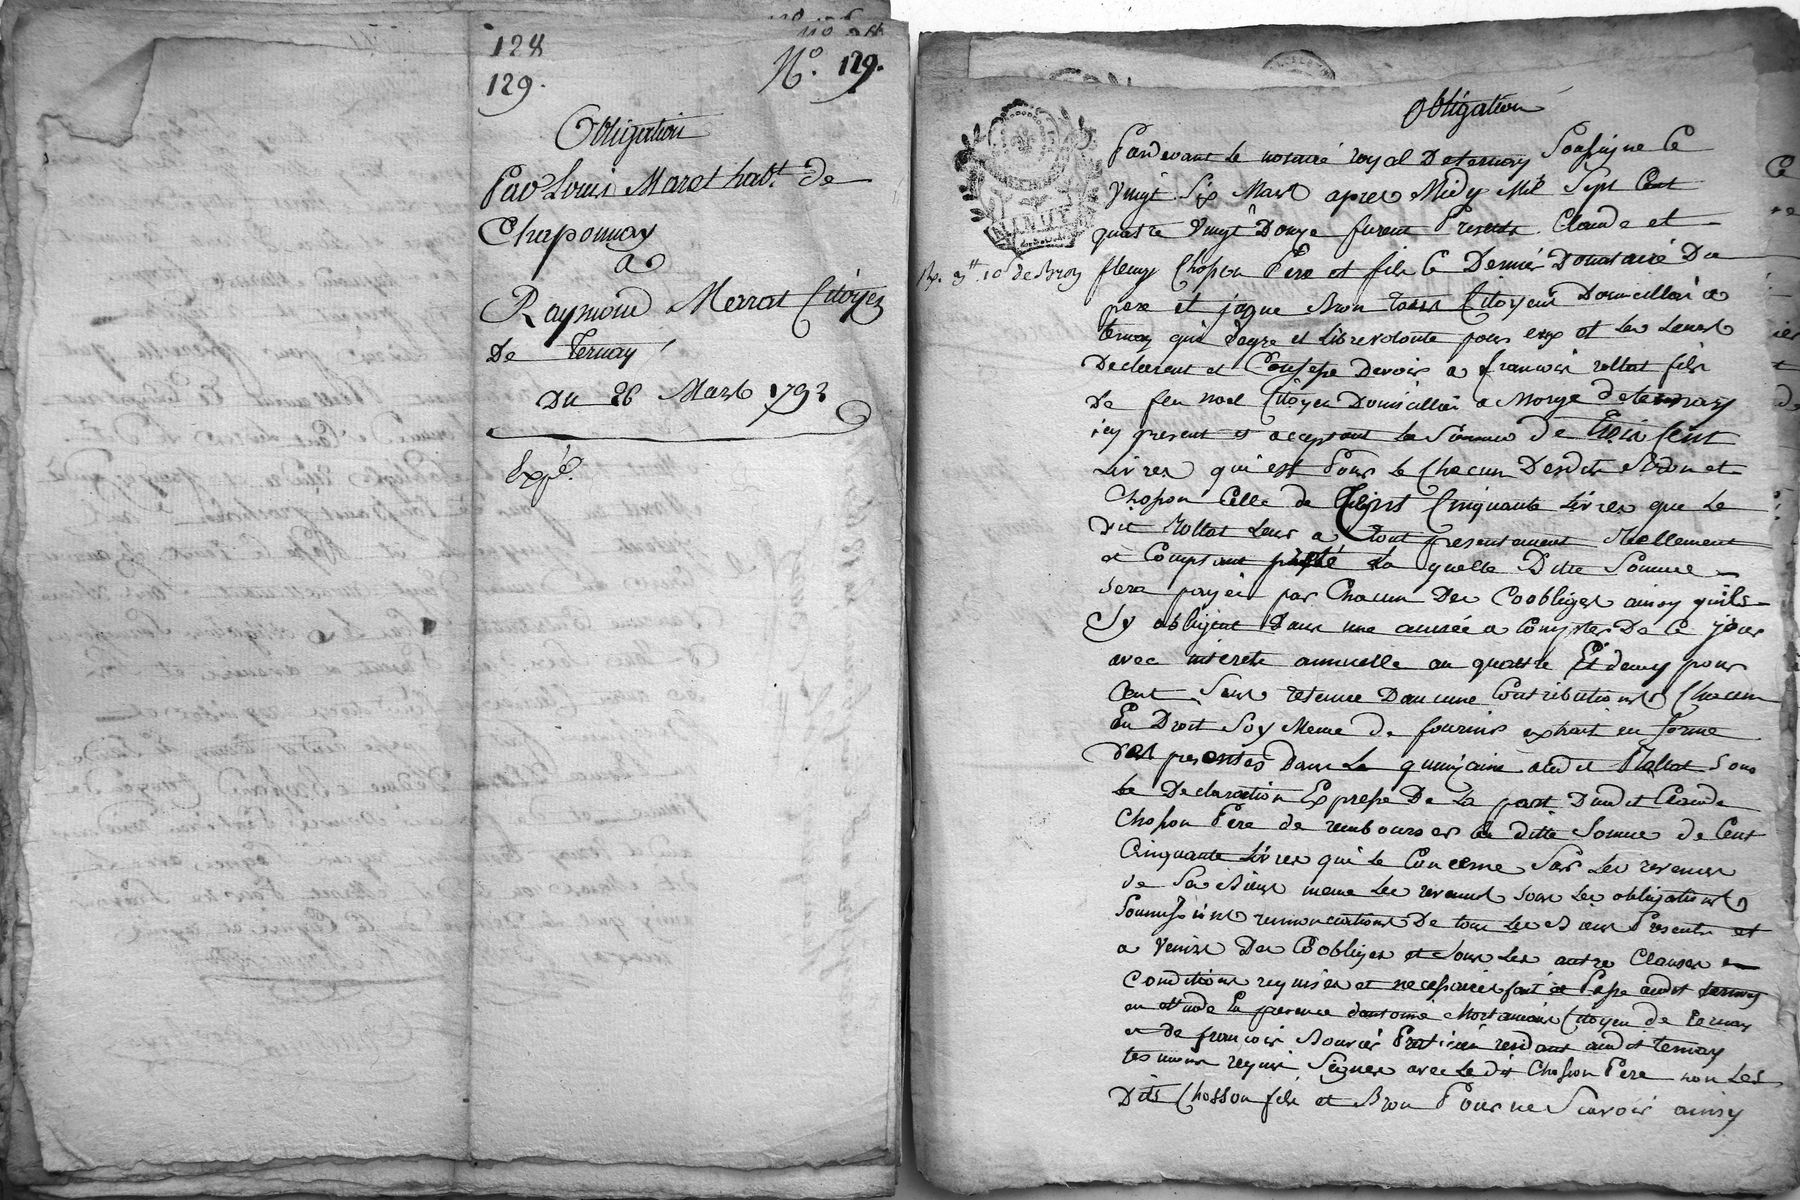 128
129.
N.º 129.
Obligation
Par Louis Maret habt. de
Chaponnay
a
Raymond Merrat Citoyen
De Ternay
Du 26 Mars 1792
Expé.
Obligation
Pardevant Le notaire royal De ternay Soussigne Ce
Vingt Six Mars apres Midy Mil Sept Cent
quatre Vingt Douze furent Presents Claude et
fleury Chosson Pere et fils Ce Dernier Donataire Du
R. 3tt 10s de Bron
pere et jaque Bron tous Citoyens Domicilliés a
ternay qui De gre et Libre volonte pour eux et les Leurs
Declarent et Confesse Devoir a francois rollat fils
De feu noel Citoyen Domicillié a Morge de ternay
icy present et acceptant La Somme de Trois Cent
Livres qui est Pour Le Chacun Desdits Bron et
Chosson Celle de Cent Cinquante Livres que Le
Dit Rollat Leur a tout presentement Reellement
et Comptant preté La quelle Ditte Somme
Sera payée par Chacun Des Coobliges ainsy quils
Sy obligent Dans une année a Compter De Ce jour
avec interets annuelle au quatre Et demy pour
Cent Sans retenue Daucune Contributions Chacun
En Droit Soy Meme De fournir extrait en forme
Des presentes Dans La quinzaine audit Rollat Sous
La Declaration Expresse De La part Dudit Claude
Chosson Pere de rembourser La ditte Somme de Cent
Cinquante Livres qui Le Concerne Sur Les revenus
de Ses Biens meme Les revenus sous Les obligations
Soumissions renonciations De tous Les Biens Presents et
a Venirs Des Coobliges et Sous Les autre Clauses
Conditions requises et necessaires fait et Passe audit ternay
en etude En presence dantoine Mortamais Citoyen de ternay
et De francois Bouvier Praticien residant audit ternay
temoins requis Signes avec Le dit Chosson Pere non Les
Dits Chosson fils et Bron Pour ne Scavoir ainsy